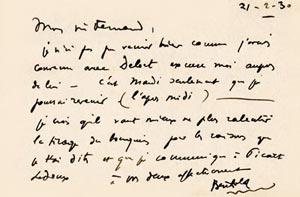 21-2-30
Mon cher
je n'ai pas pu venir hier comme j'avais
convenu avec Debat excuse moi auprès
de lui — c'est mardi seulement que je
pourrai revenir (l'après midi)
je crois qu'il vaut mieux ne plus ralentir
le tirage du pour les raisons que
je t'ai dites et que je communique à Picart
Ledoux à vous deux affectueusement